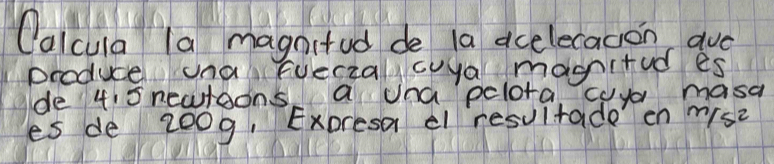 Calcula la magnitud de la aceleracion que
produce una fuerza cuya magnitud es
de 4.5 newtoons a una pelota cuya masa
es de 200g, Expresa el resultado en m/s2